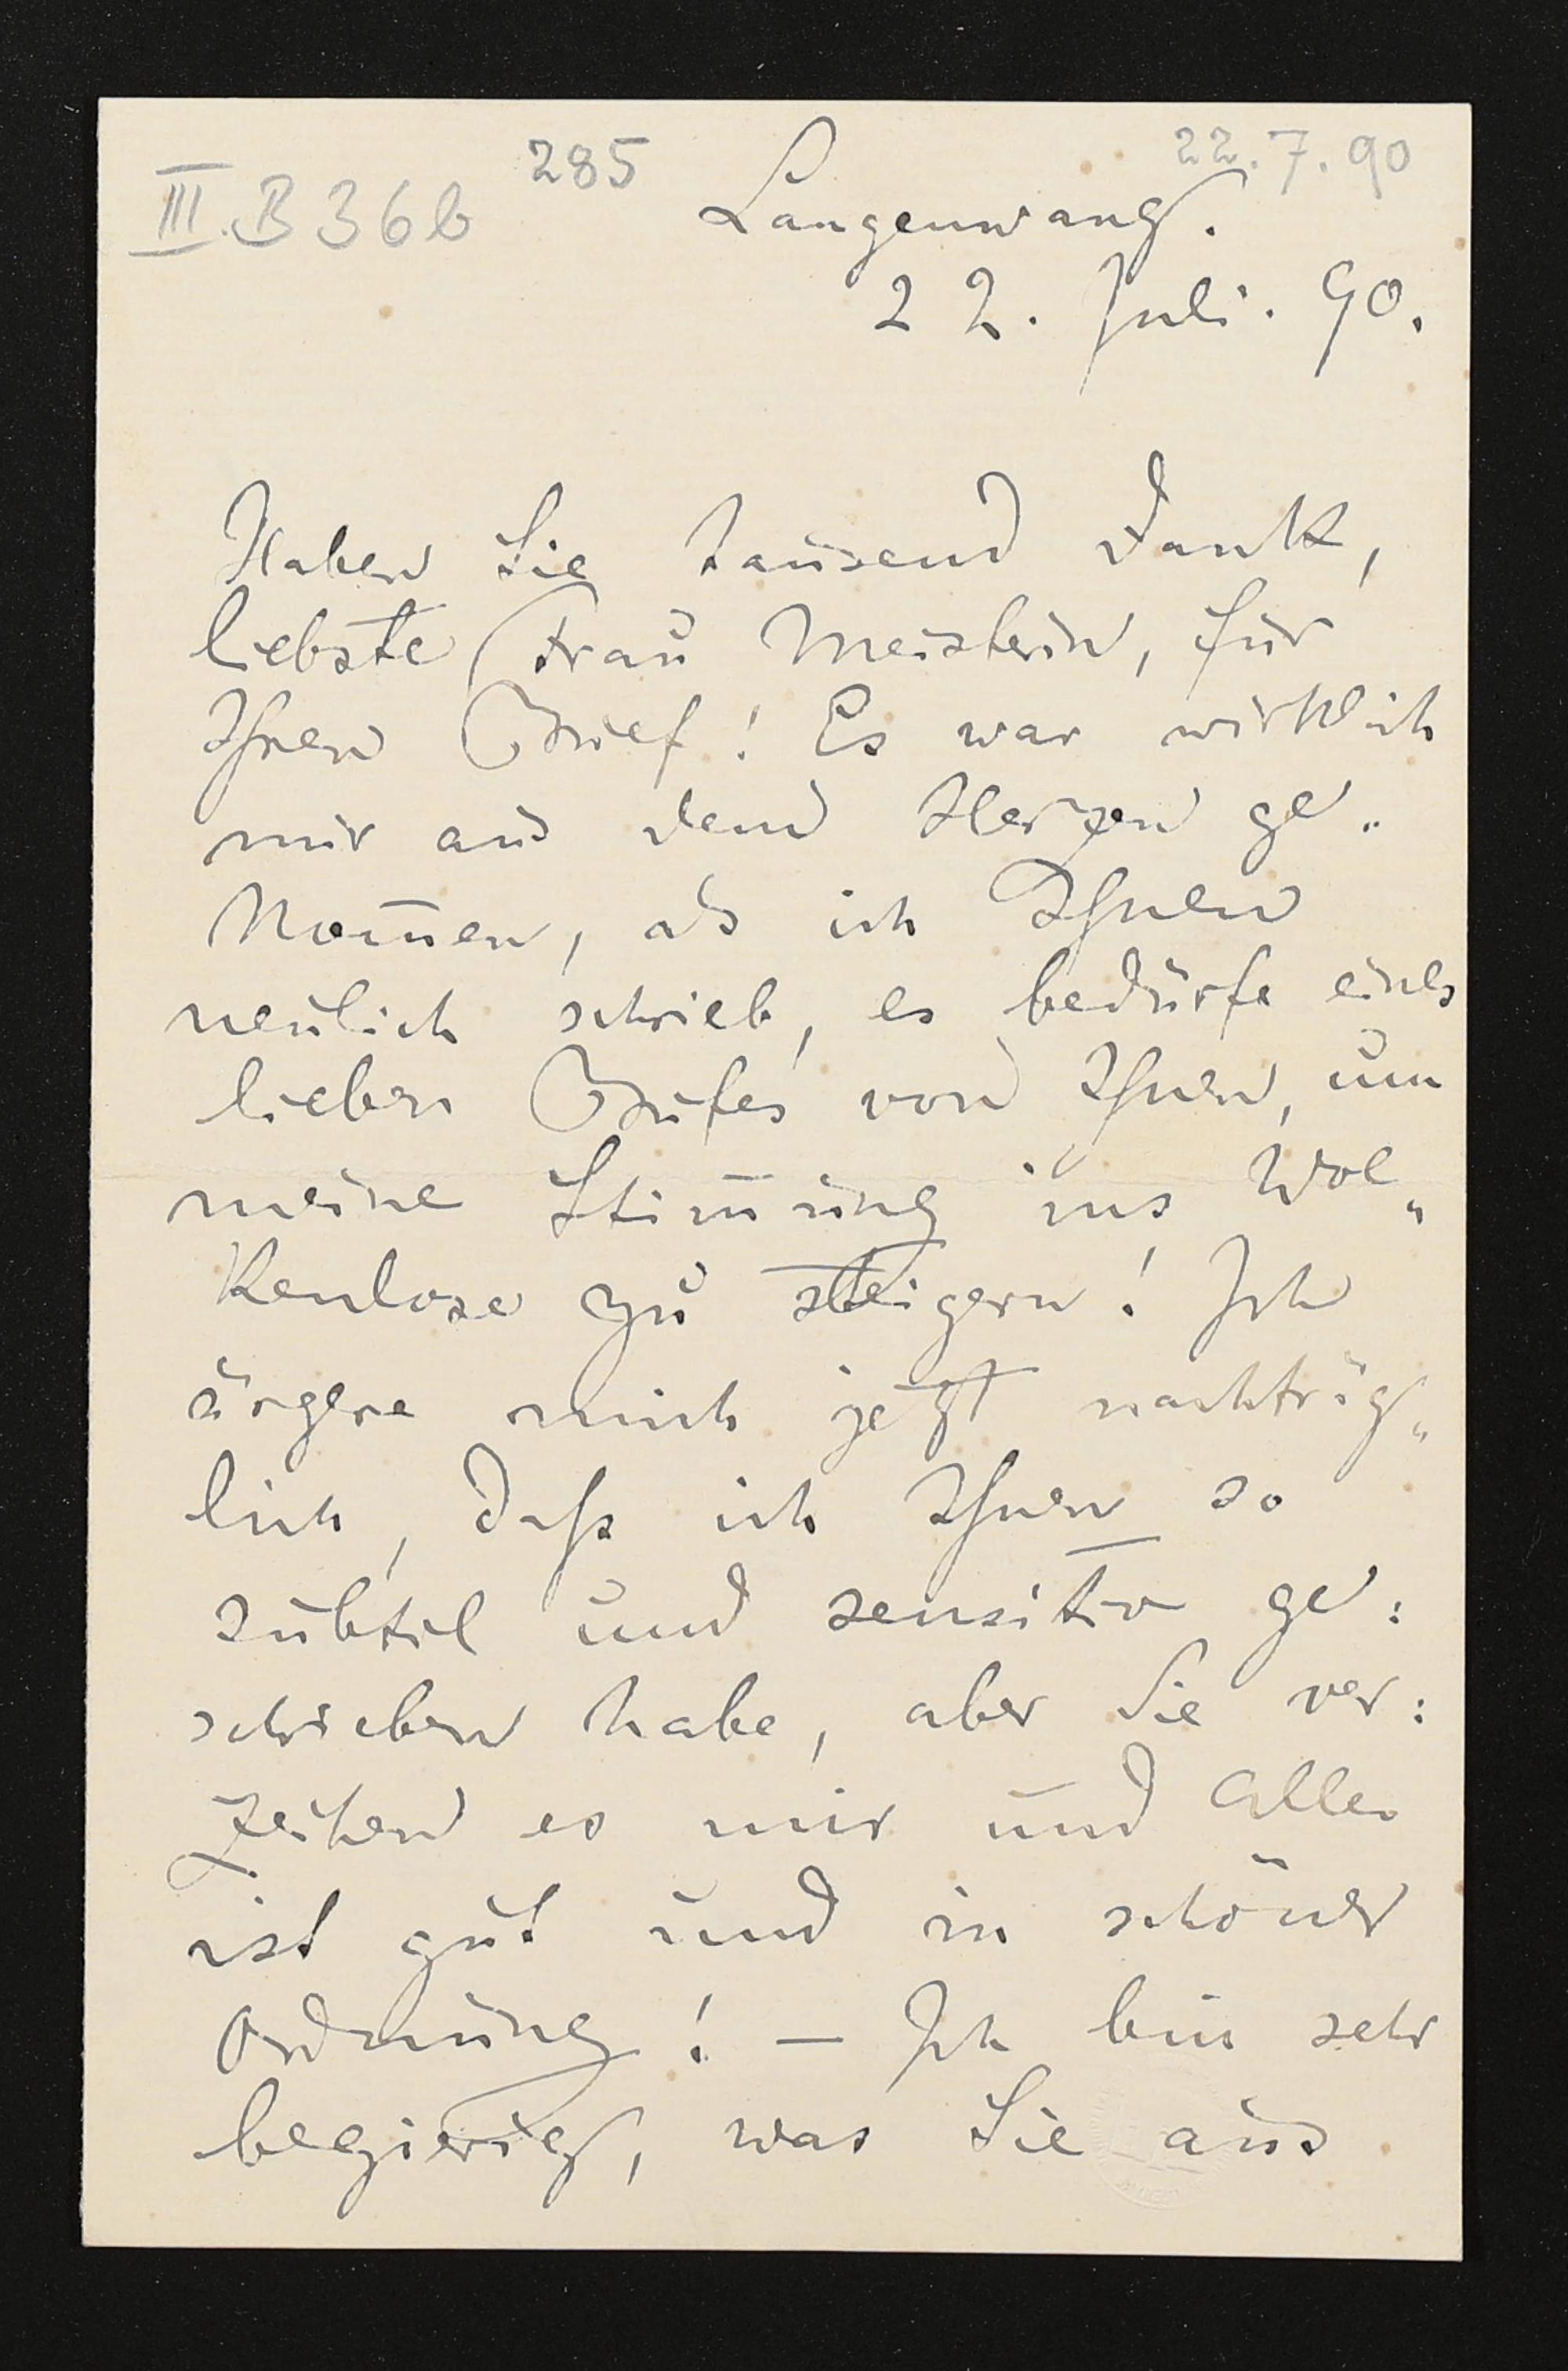 285
22.7.90
III. B 36 b
Langenwang.
22. Juli. 90.
Haben Sie tausend Dank,
liebste Frau Meisterin, für
Ihren Brief! Es war wirklich
mir aus dem Herzen ge„
kom̅en, als ich Ihnen
neulich schrieb, es bedürfe eines
lieben Briefes von Ihnen, um
meine Stim̅ung ins Wol„
kenlose zu steigern! Ich
ärgere mich jetzt nachträg„
lich, daß ich Ihnen so
subtil und sensitiv ge:
schrieben habe, aber Sie ver:
zeihen es mir und Alles
ist gut und in schöner
Ordnung! — Ich bin sehr
begierig, was Sie aus